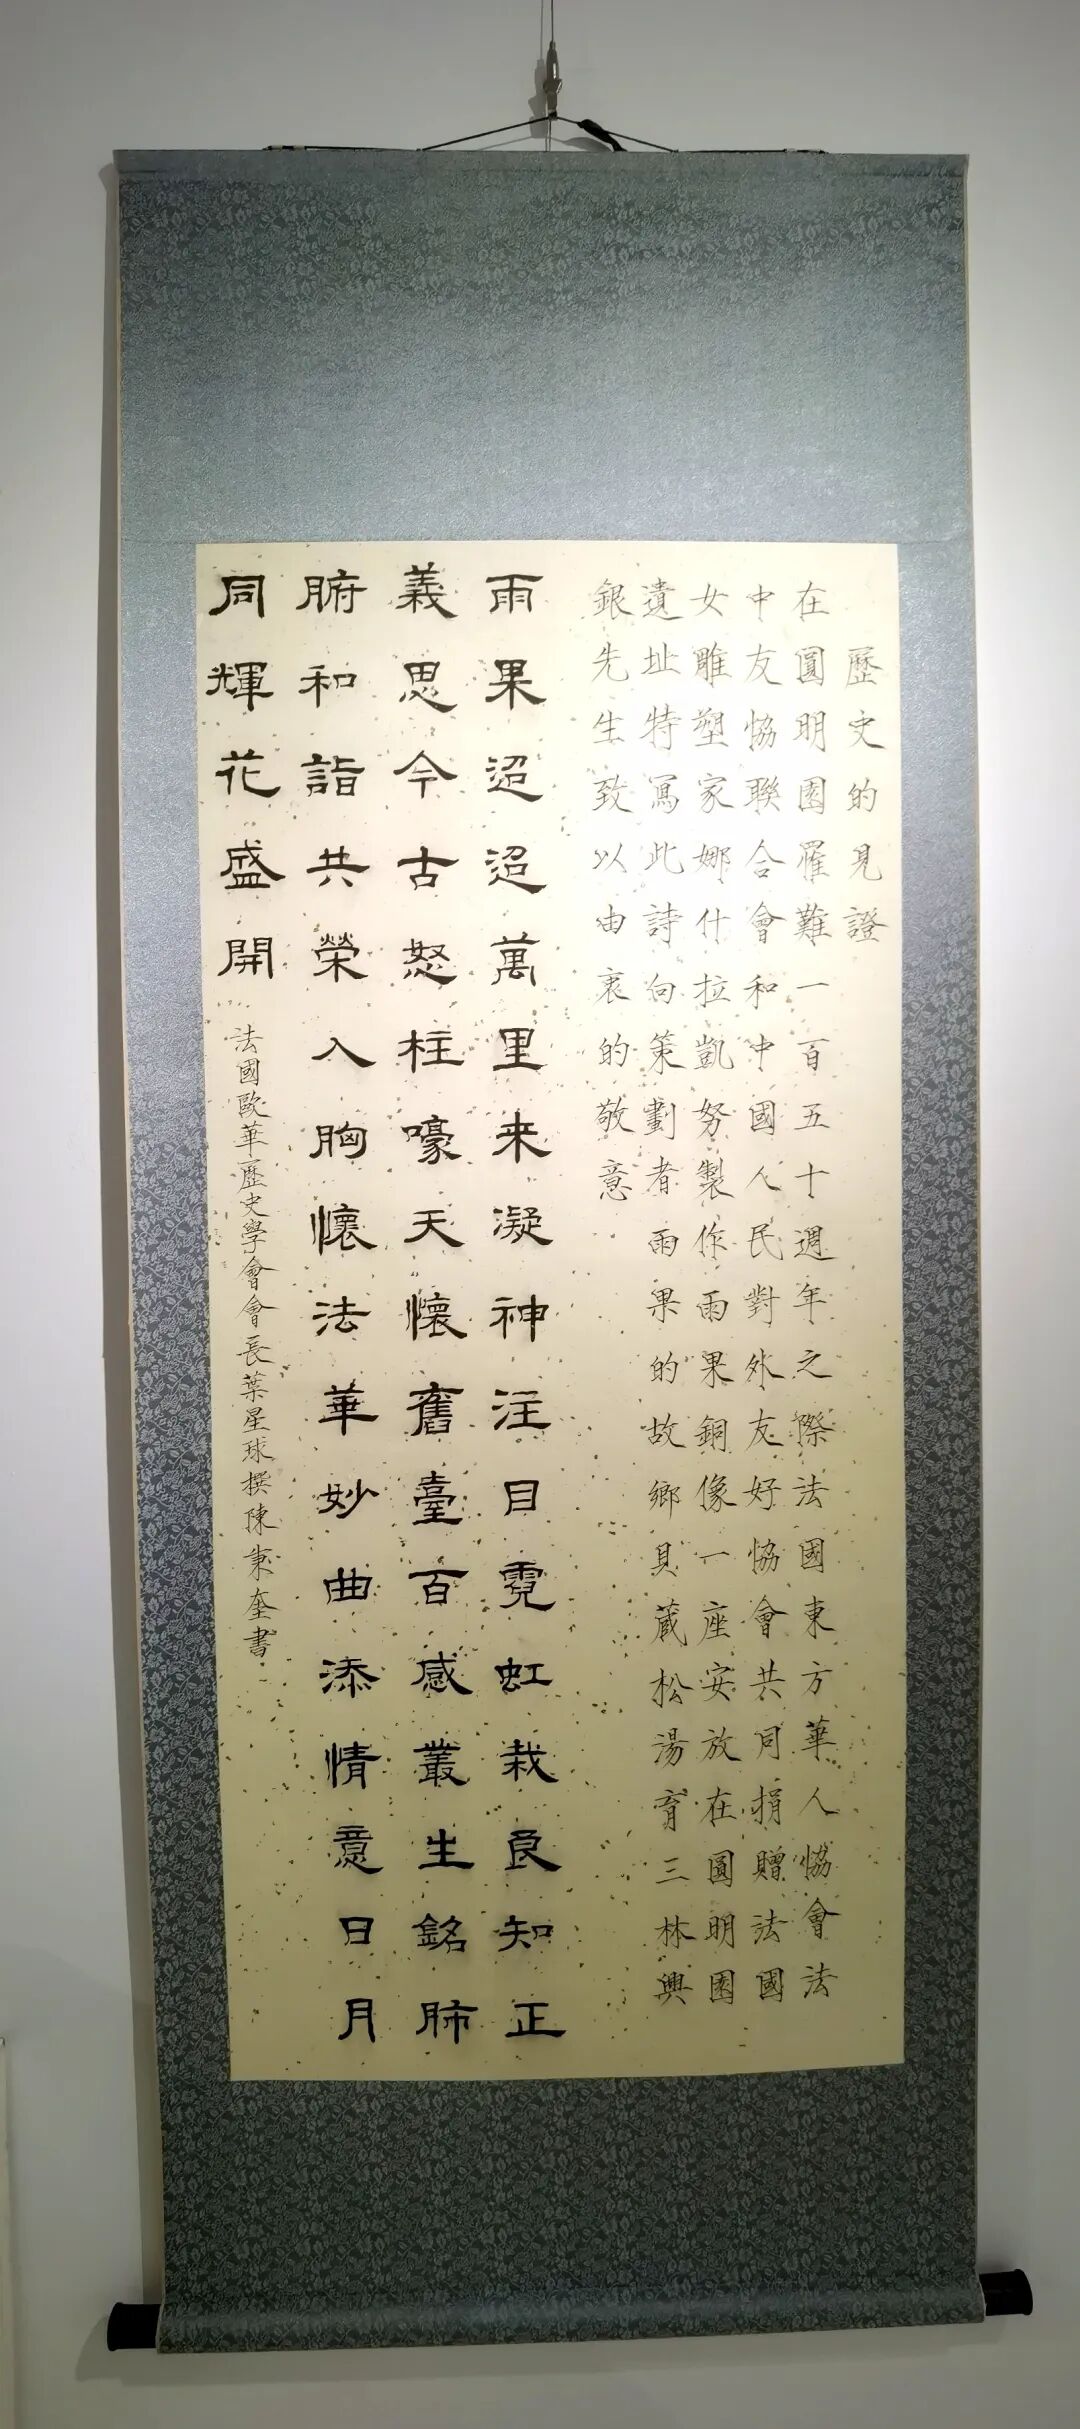 歷史的見證
在圓明園罹難一百五十週年之際法國東方華人協會法
中友協聯合會和中國人民對外友好協會共同捐贈法國
女雕塑家娜什拉凱努製作雨果銅像一座安放在圓明園
遺址特寫此詩向策劃者雨果的故鄉貝藏松湯育三林興
銀先生致以由衷的敬意
雨果迢迢萬里来凝神注目霓虹栽良知正
義思今古怒柱嚎天懷舊臺百感叢生銘肺
腑和詣共榮入胸懷法華妙曲添情意日月
同輝花盛開
法國歐華歷史學會會長葉星球撰陳秉奎書